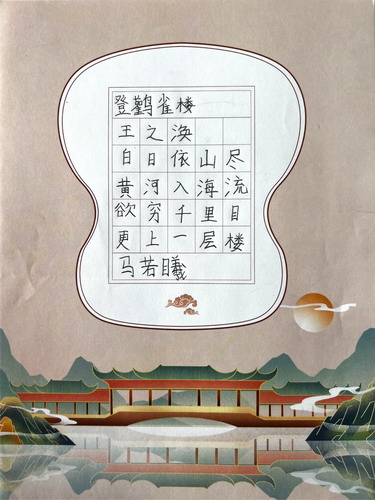 登鹳雀楼
王之涣
白日依山尽
黄河入海流
欲穷千里目
更上一层楼
马若曦